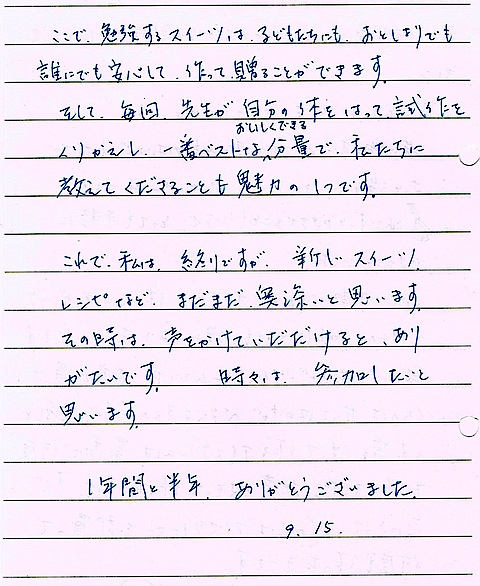 ここで、勉強するスイーツは、子どもたちにも、おとしよりでも
誰にでも安心して、作って、贈ることができます。
そして、毎回、先生が、自分の体をはって、試作を
おいしくできる
くりかえし、一番ベストな分量で、私たちに
教えてくださることも魅力の1つです。
これで、私は、終りですが、新しいスイーツ
レシピなど、まだまだ、奥深いと思います。
その時は、声をかけていただけると、あり
がたいです。 時々は、参加したいと
思います。
1年間と半年、ありがとうございました。
9. 15.